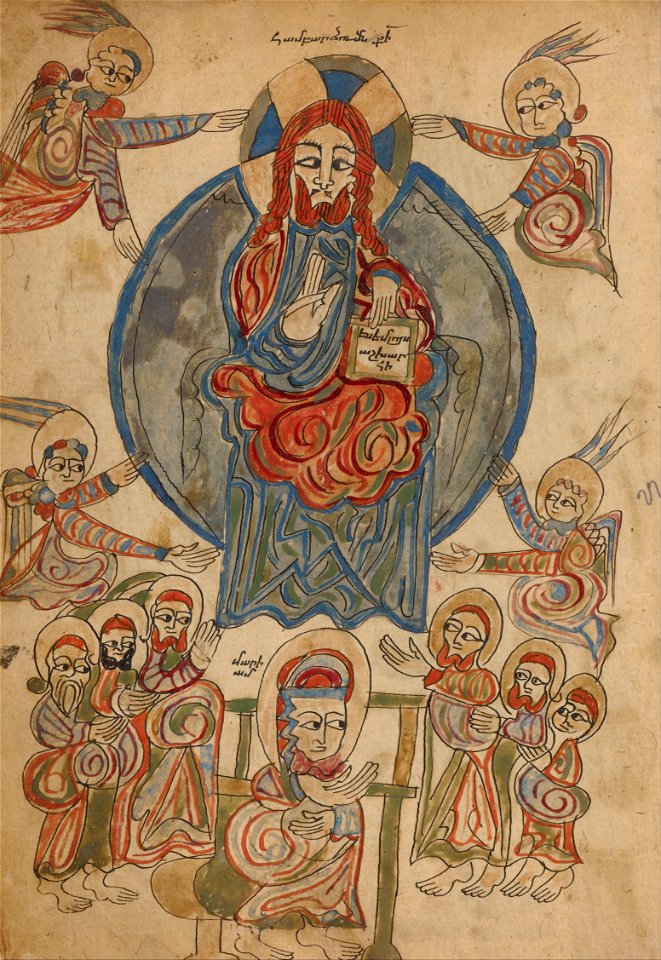 Համբարձումն քի
ես եմ լոյս
աշխար
հի
մարի
ամ